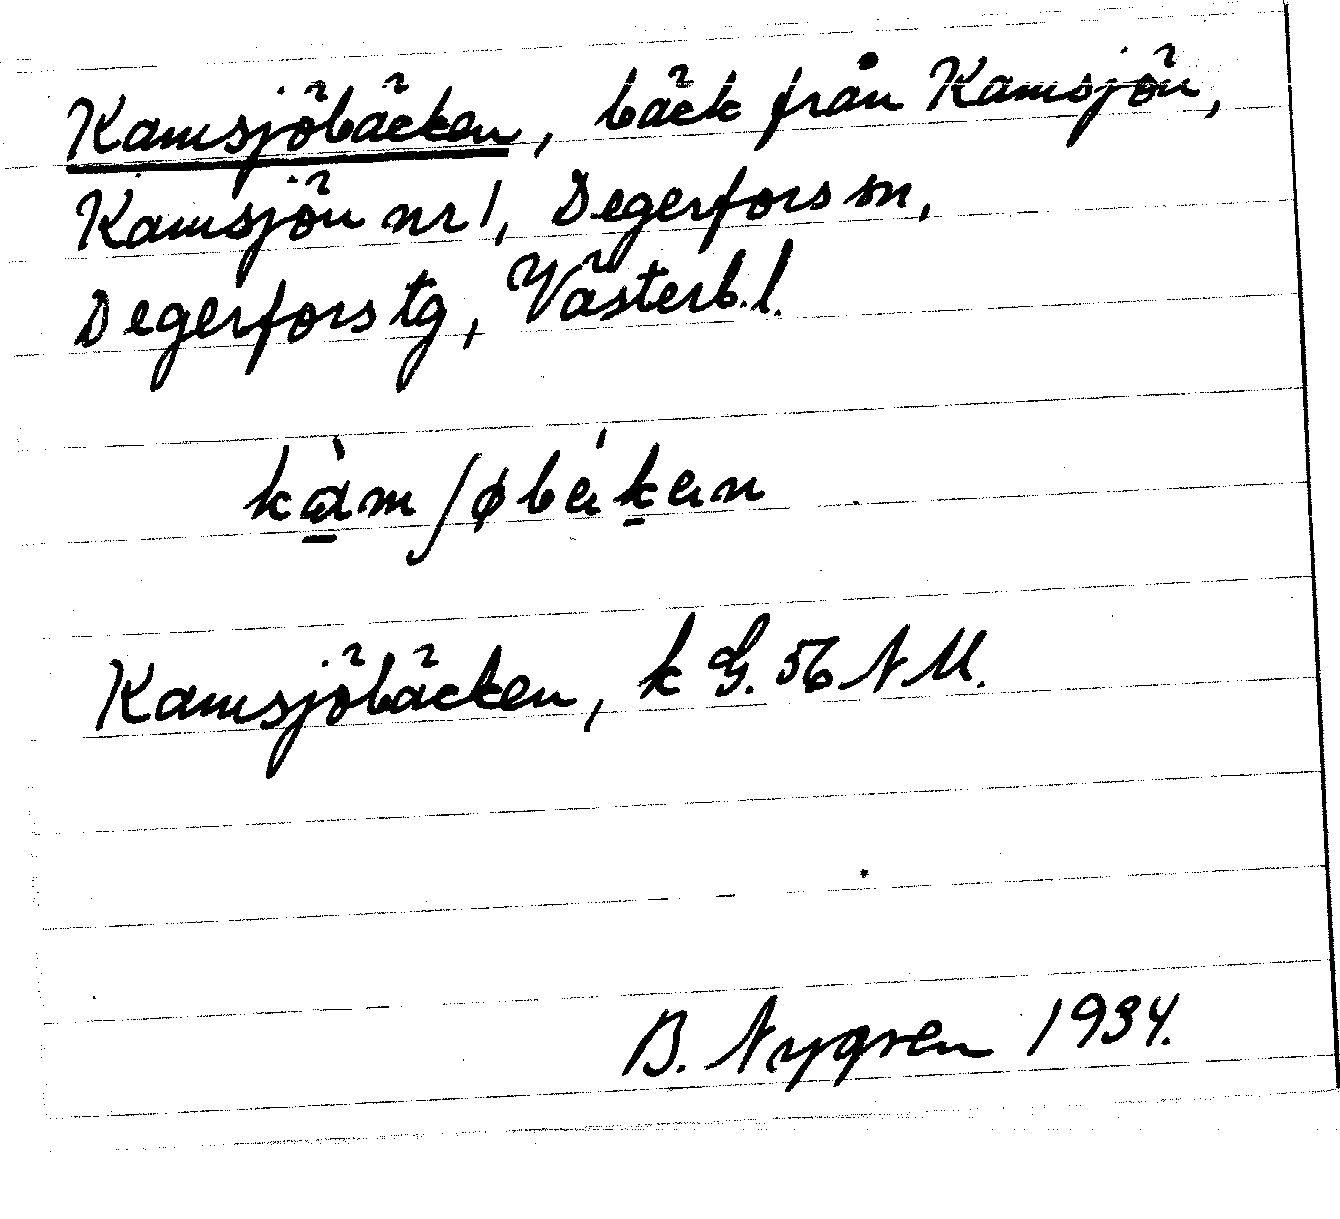 Kamsjöbäcken, bäck från Kamsjön,
Kamsjön nr 1, Degerfors sn,
Degerfors tg, Västerb. l.
Kamsjöbäcken, k G. 56 N M.
B. Nygren 1934.